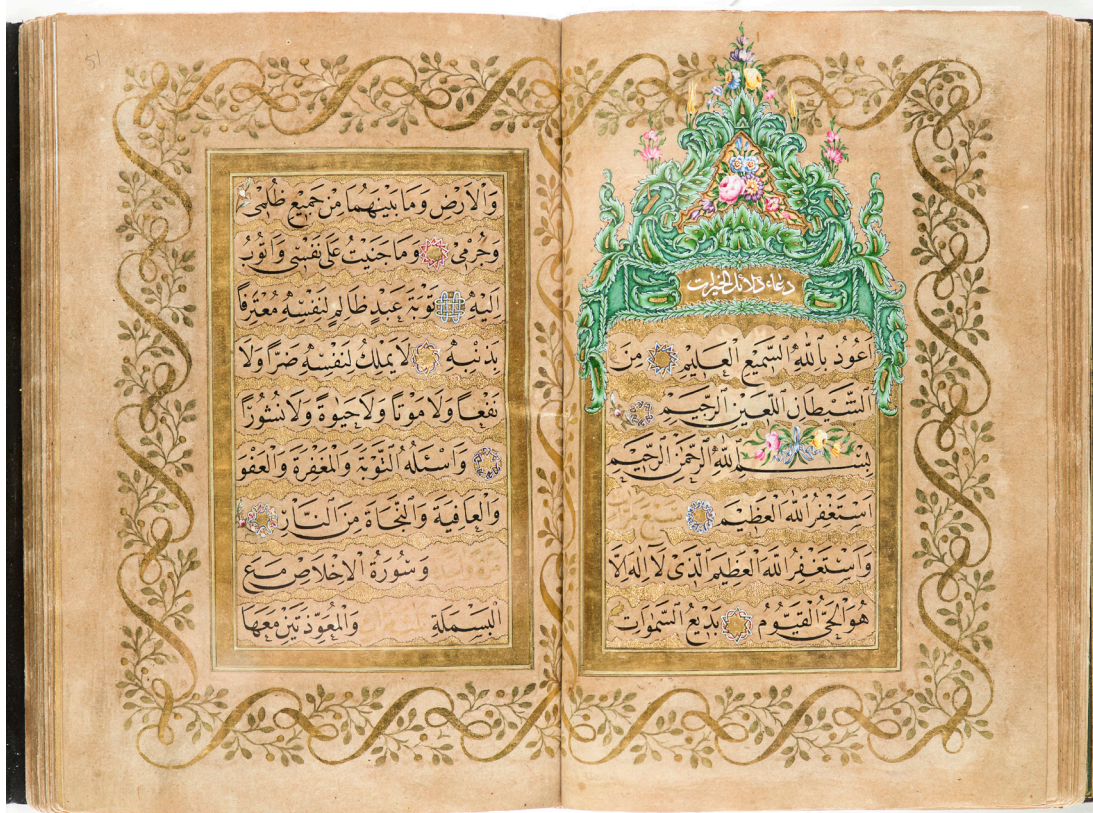 دعاء دلائل الخيرات
اَعُوذُ بِاللّٰهِ السَّمِيعِ الْعَلِيمِ مِنَ
الشَّيْطَانِ اللَّعِينِ الرَّجِيمِ
بِسْمِ اللّٰهِ الرَّحْمٰنِ الرَّحِيمِ
اَسْتَغْفِرُ اللّٰهَ الْعَظِيمَ
وَاَسْتَغْفِرُ اللّٰهَ الْعَظِيمَ الَّذِى لَآ اِلٰهَ اِلَّا
هُوَ الْحَىُّ الْقَيُّومُ بَدِيعُ السَّمٰوَاتِ
وَالْاَرْضِ وَمَا بَيْنَهُمَا مِنْ جَمِيعِ ظُلْمِى
وَجُرْمِى وَمَا جَنَيْتُ عَلَى نَفْسِى وَاَتُوبُ
اِلَيْهِ تَوْبَةَ عَبْدٍ ظَالِمٍ لِنَفْسِهِ مُعْتَرِفًا
بِذَنْبِهِ لَا يَمْلِكُ لِنَفْسِهِ ضَرًّا وَلَا
نَفْعًا وَلَا مَوْتًا وَلَا حَيٰوةً وَلَا نُشُورًا
وَاَسْئَلُهُ التَّوْبَةَ وَالْمَغْفِرَةَ وَالْعَفْوَ
وَالْعَافِيَةَ وَالنَّجَاةَ مِنَ النَّارِ
وَسُورَةُ الْاِخْلَاصِ مَعَ
الْبَسْمَلَةِ وَالْمُعَوِّذَتَيْنِ مَعَهَا